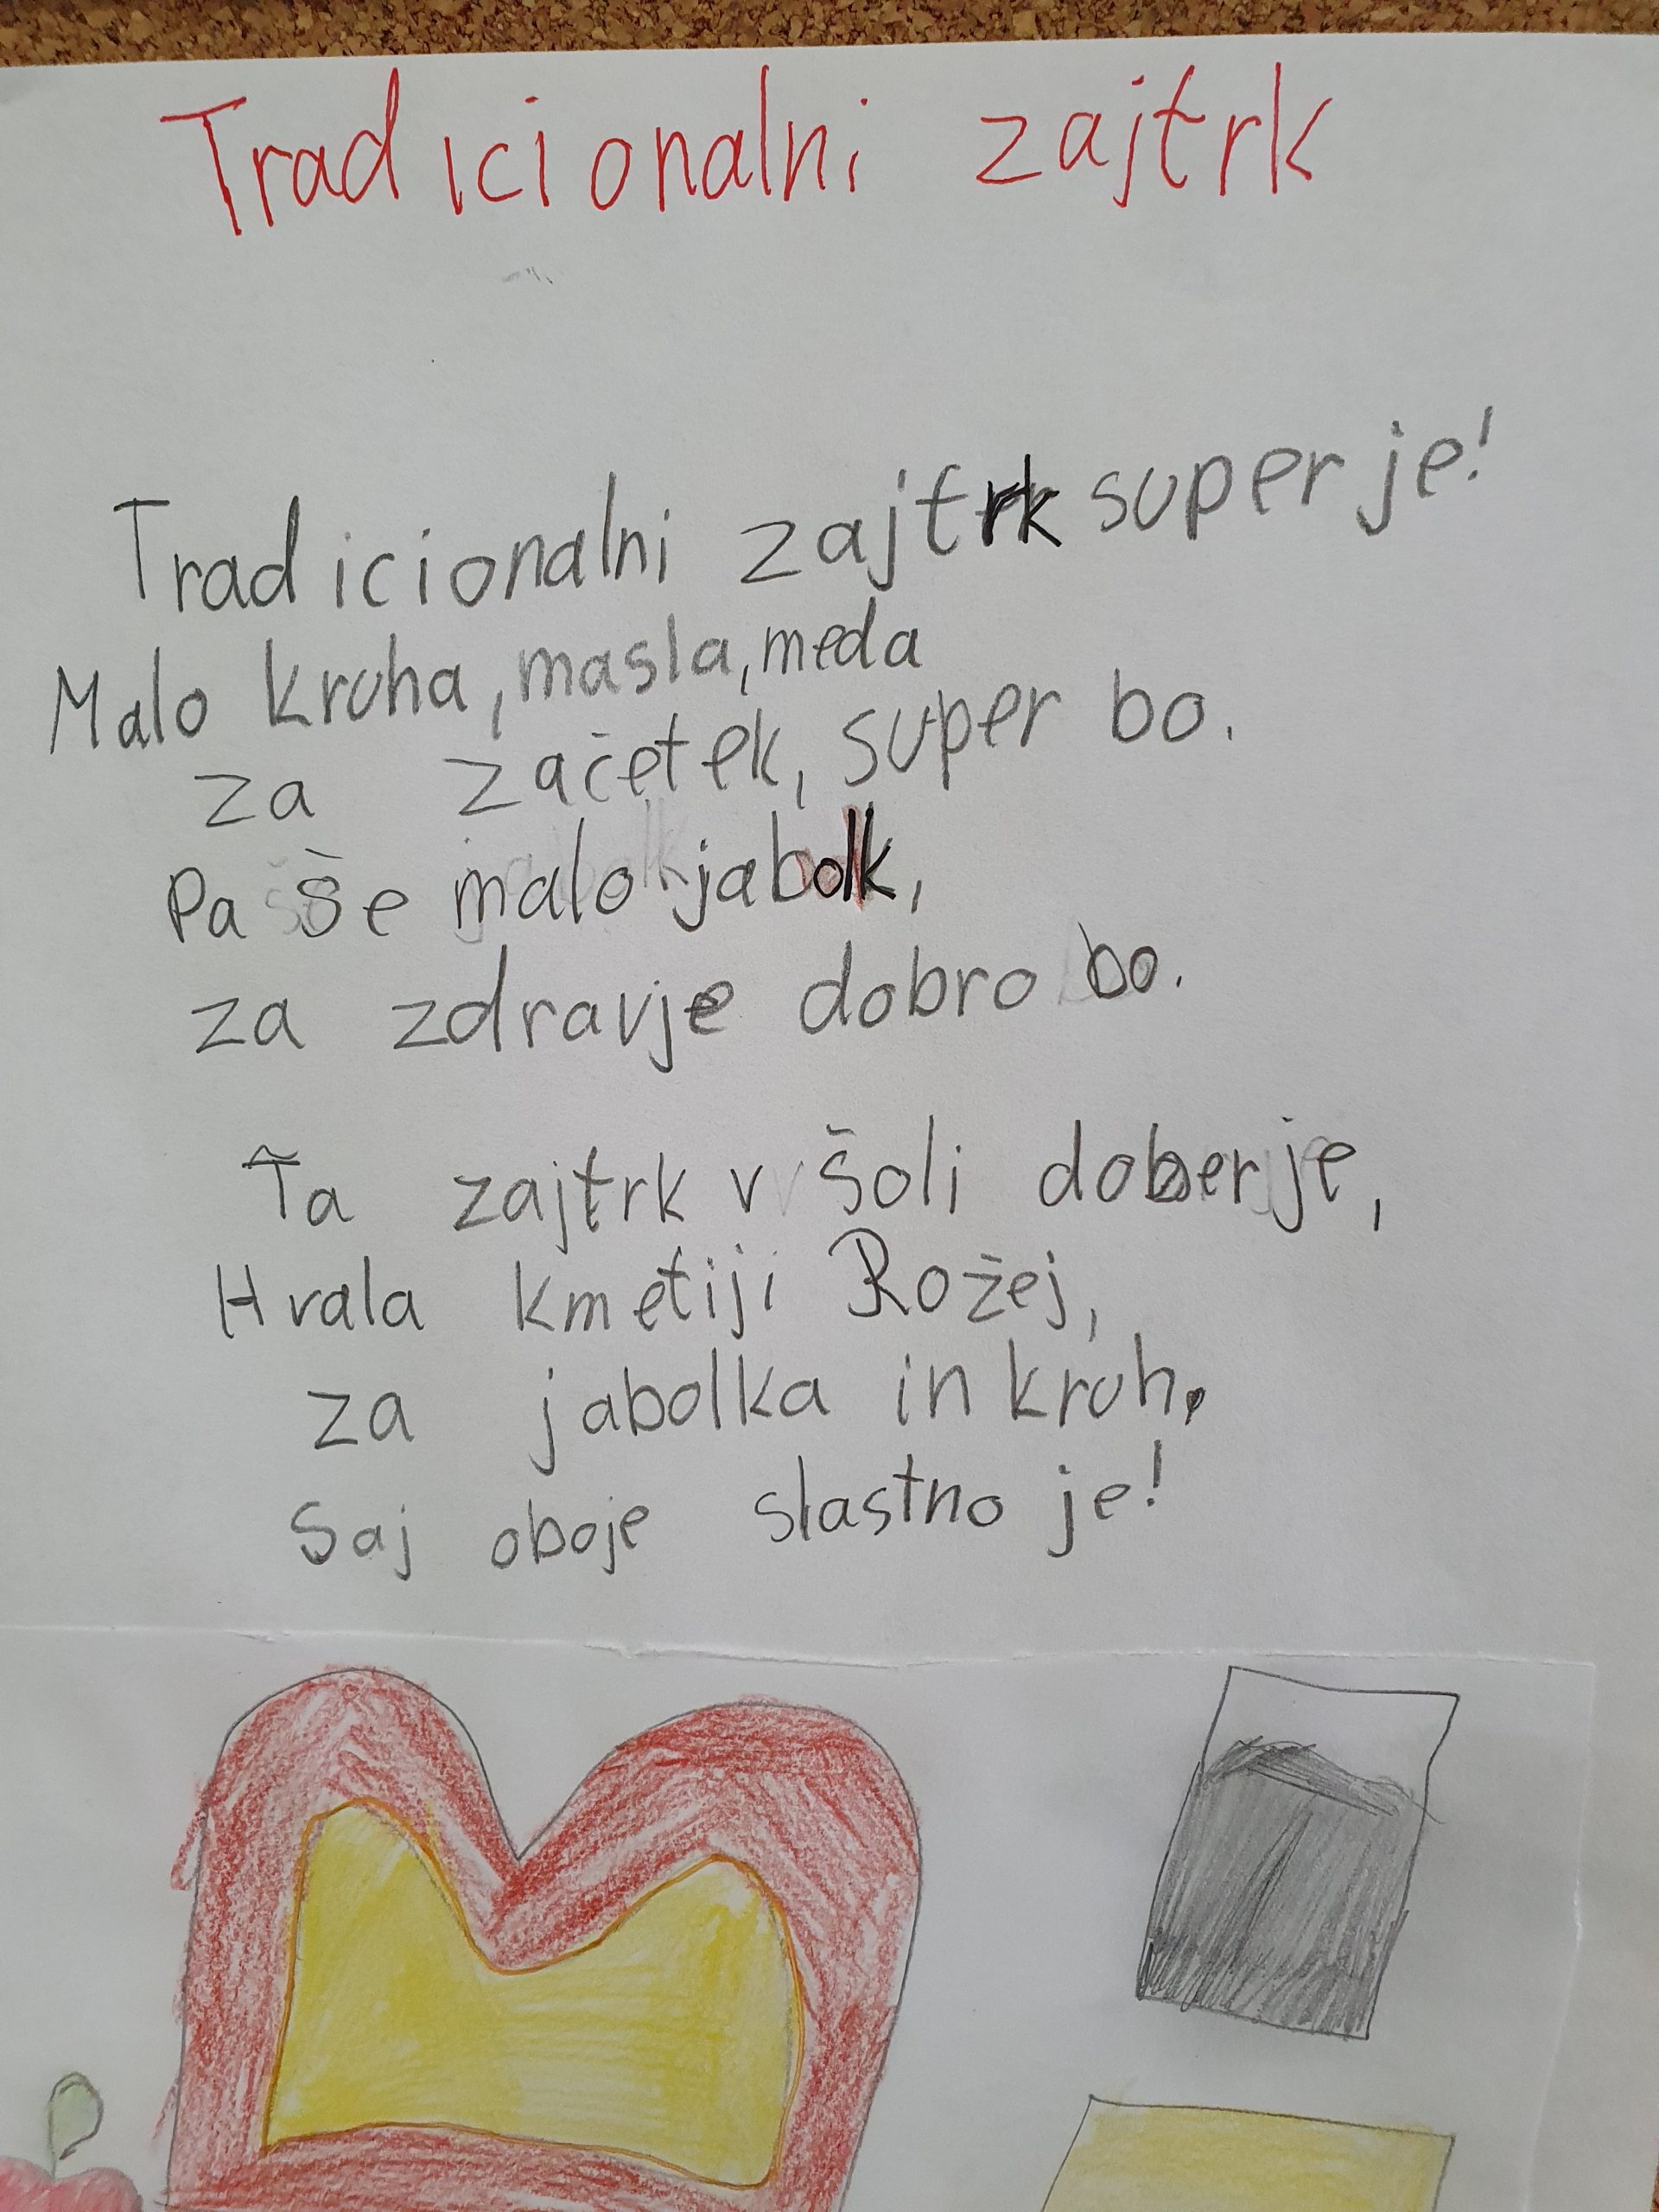 Tradicionalni zajtrk
Tradicionalni zajtrk super je!
Malo kruha, masla, meda
za začetek, super bo.
Pa še malo jabolk,
za zdravje dobro bo.
Ta zajtrk v šoli dober je,
Hvala kmetiji Rožej,
za jabolka in kruh.
Saj oboje slastno je!